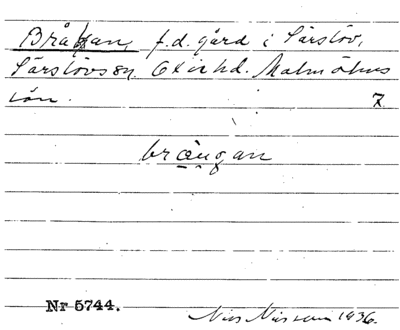 Brågan, f.d. gård i Särslöv,
Särslövs sn. Oxie hd. Malmöhus
län. 7
brågan
Nr 5744.
Nils Nilsson 1936.